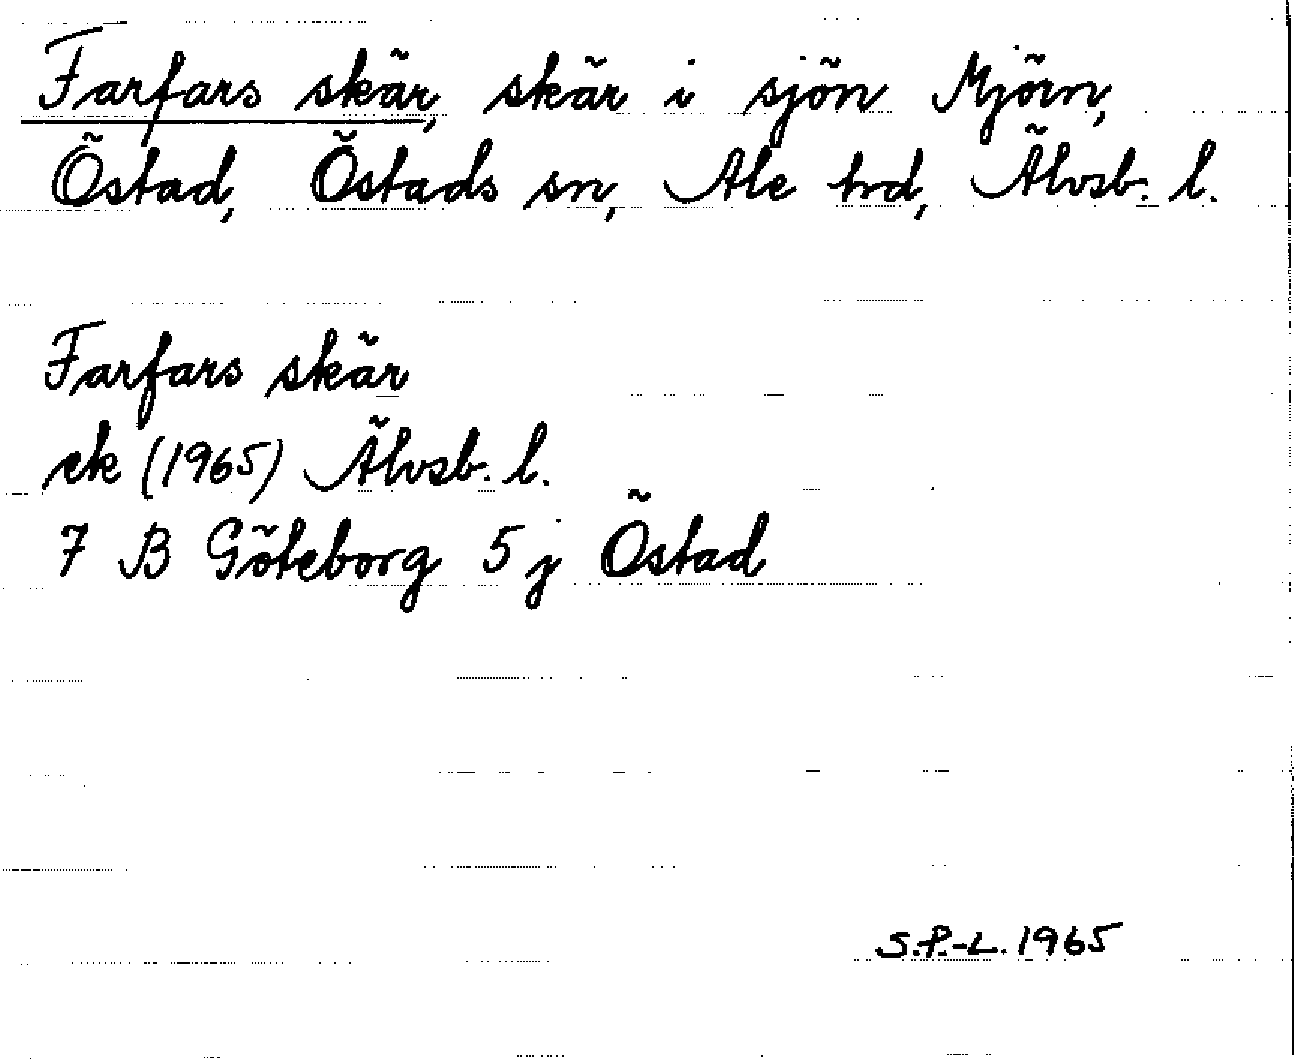 Farfars skär, skär i sjön Mjörn,
Östad, Östads sn, Ale hrd, Älvsb. l.
Farfars skär
ek (1965) Älvsb. l.
7 B Göteborg 5 j Östad
S.P.-L. 1965